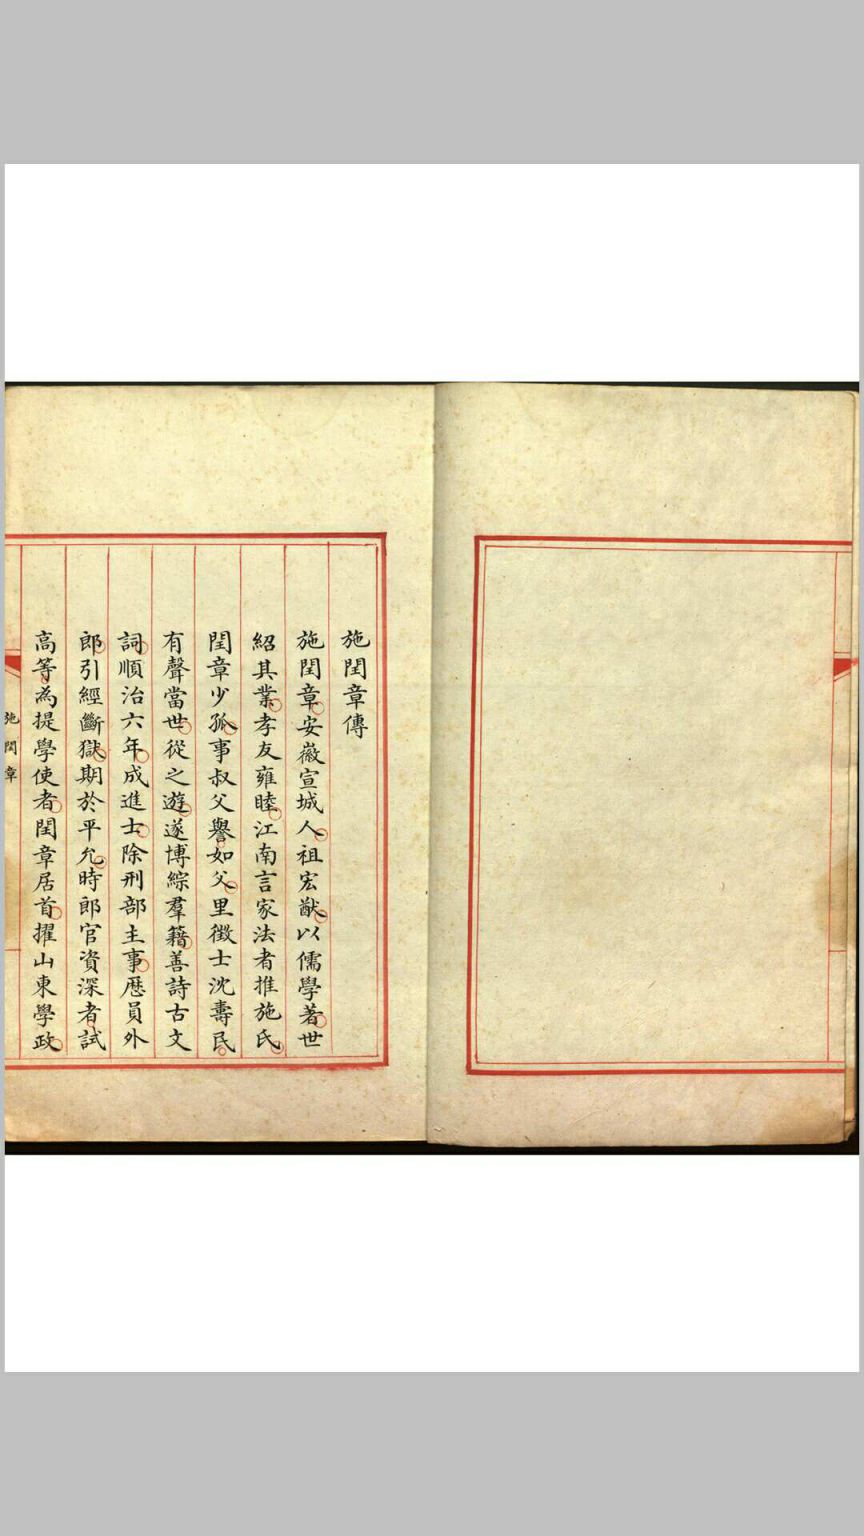 施閏章傳
施閏章安徽宣城人祖宏猷以儒學著世
紹其業孝友雍睦江南言家法者推施氏
閏章少孤事叔父譽如父里徵士沈壽民
有聲當世從之遊遂博綜羣籍善詩古文
詞順治六年成進士除刑部主事歷員外
郎引經斷獄期於平允時郎官資深者試
高等為提學使者閏章居首擢山東學政
施閏章